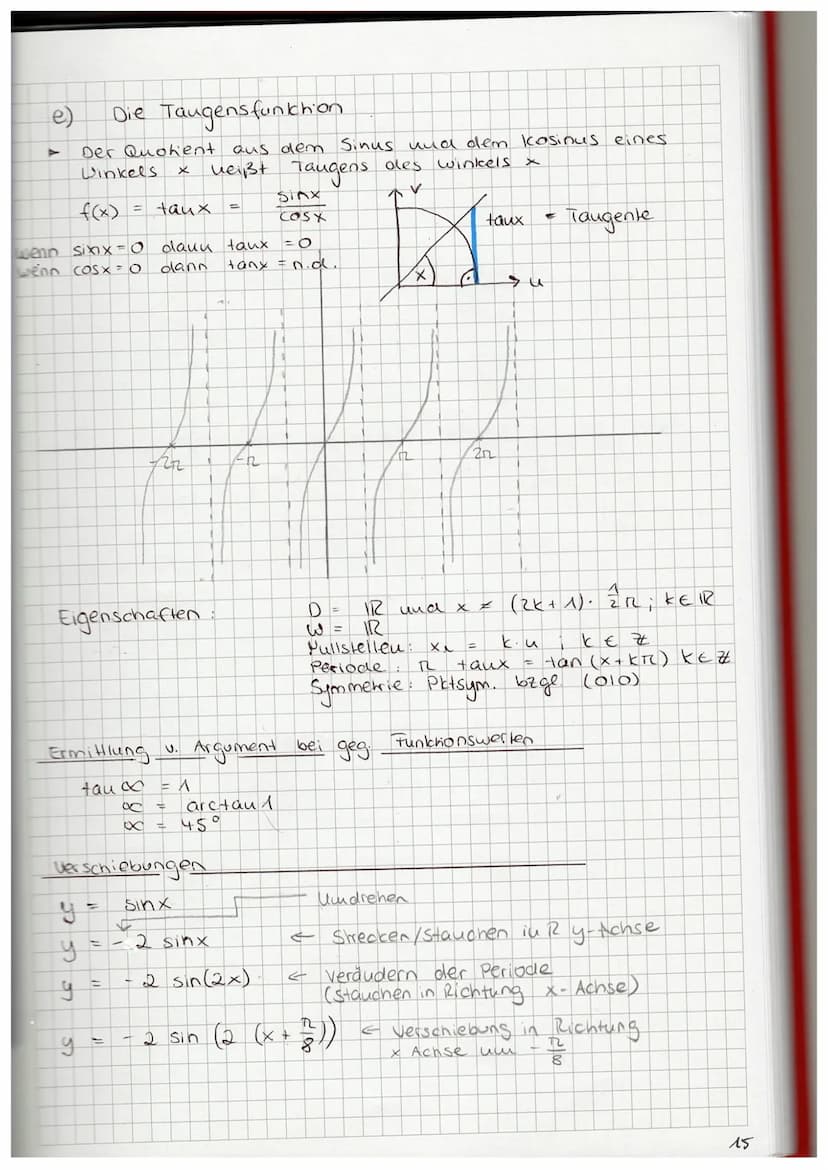 e) Die Tangensfunktion
► Der Quotient aus dem Sinus und dem Kosinus eines
Winkels x heißt Tangens des Winkels x
f(x) = tanx = sinx/cosx
v
tanx = Tangente
x
u
wenn sinx=0 dann tanx =0
wenn cosx=0 dann tanx = n.d.
-2π -π π 2π
Eigenschaften:
D = ℝ und x ≠ (2k+1)· 1/2 π ; k∈ ℝ
W = ℝ
Nullstellen: xk = k·π ; k ∈ ℤ
Periode: π tanx = tan(x+kπ) k∈ℤ
Symmetrie: Pktsym. bzgl (0|0)
Ermittlung v. Argument bei geg. Funktionswerten
tan ∝ = 1
∝ = arctan 1
∝ = 45°
Verschiebungen
y = sinx Umdrehen
y = - 2 sinx ← Strecken/Stauchen in R y-Achse
y = - 2 sin(2x) ← Verändern der Periode
(Stauchen in Richtung x-Achse)
y = - 2 sin (2 (x + π/8)) ← Verschiebung in Richtung
x Achse um - π/8
15